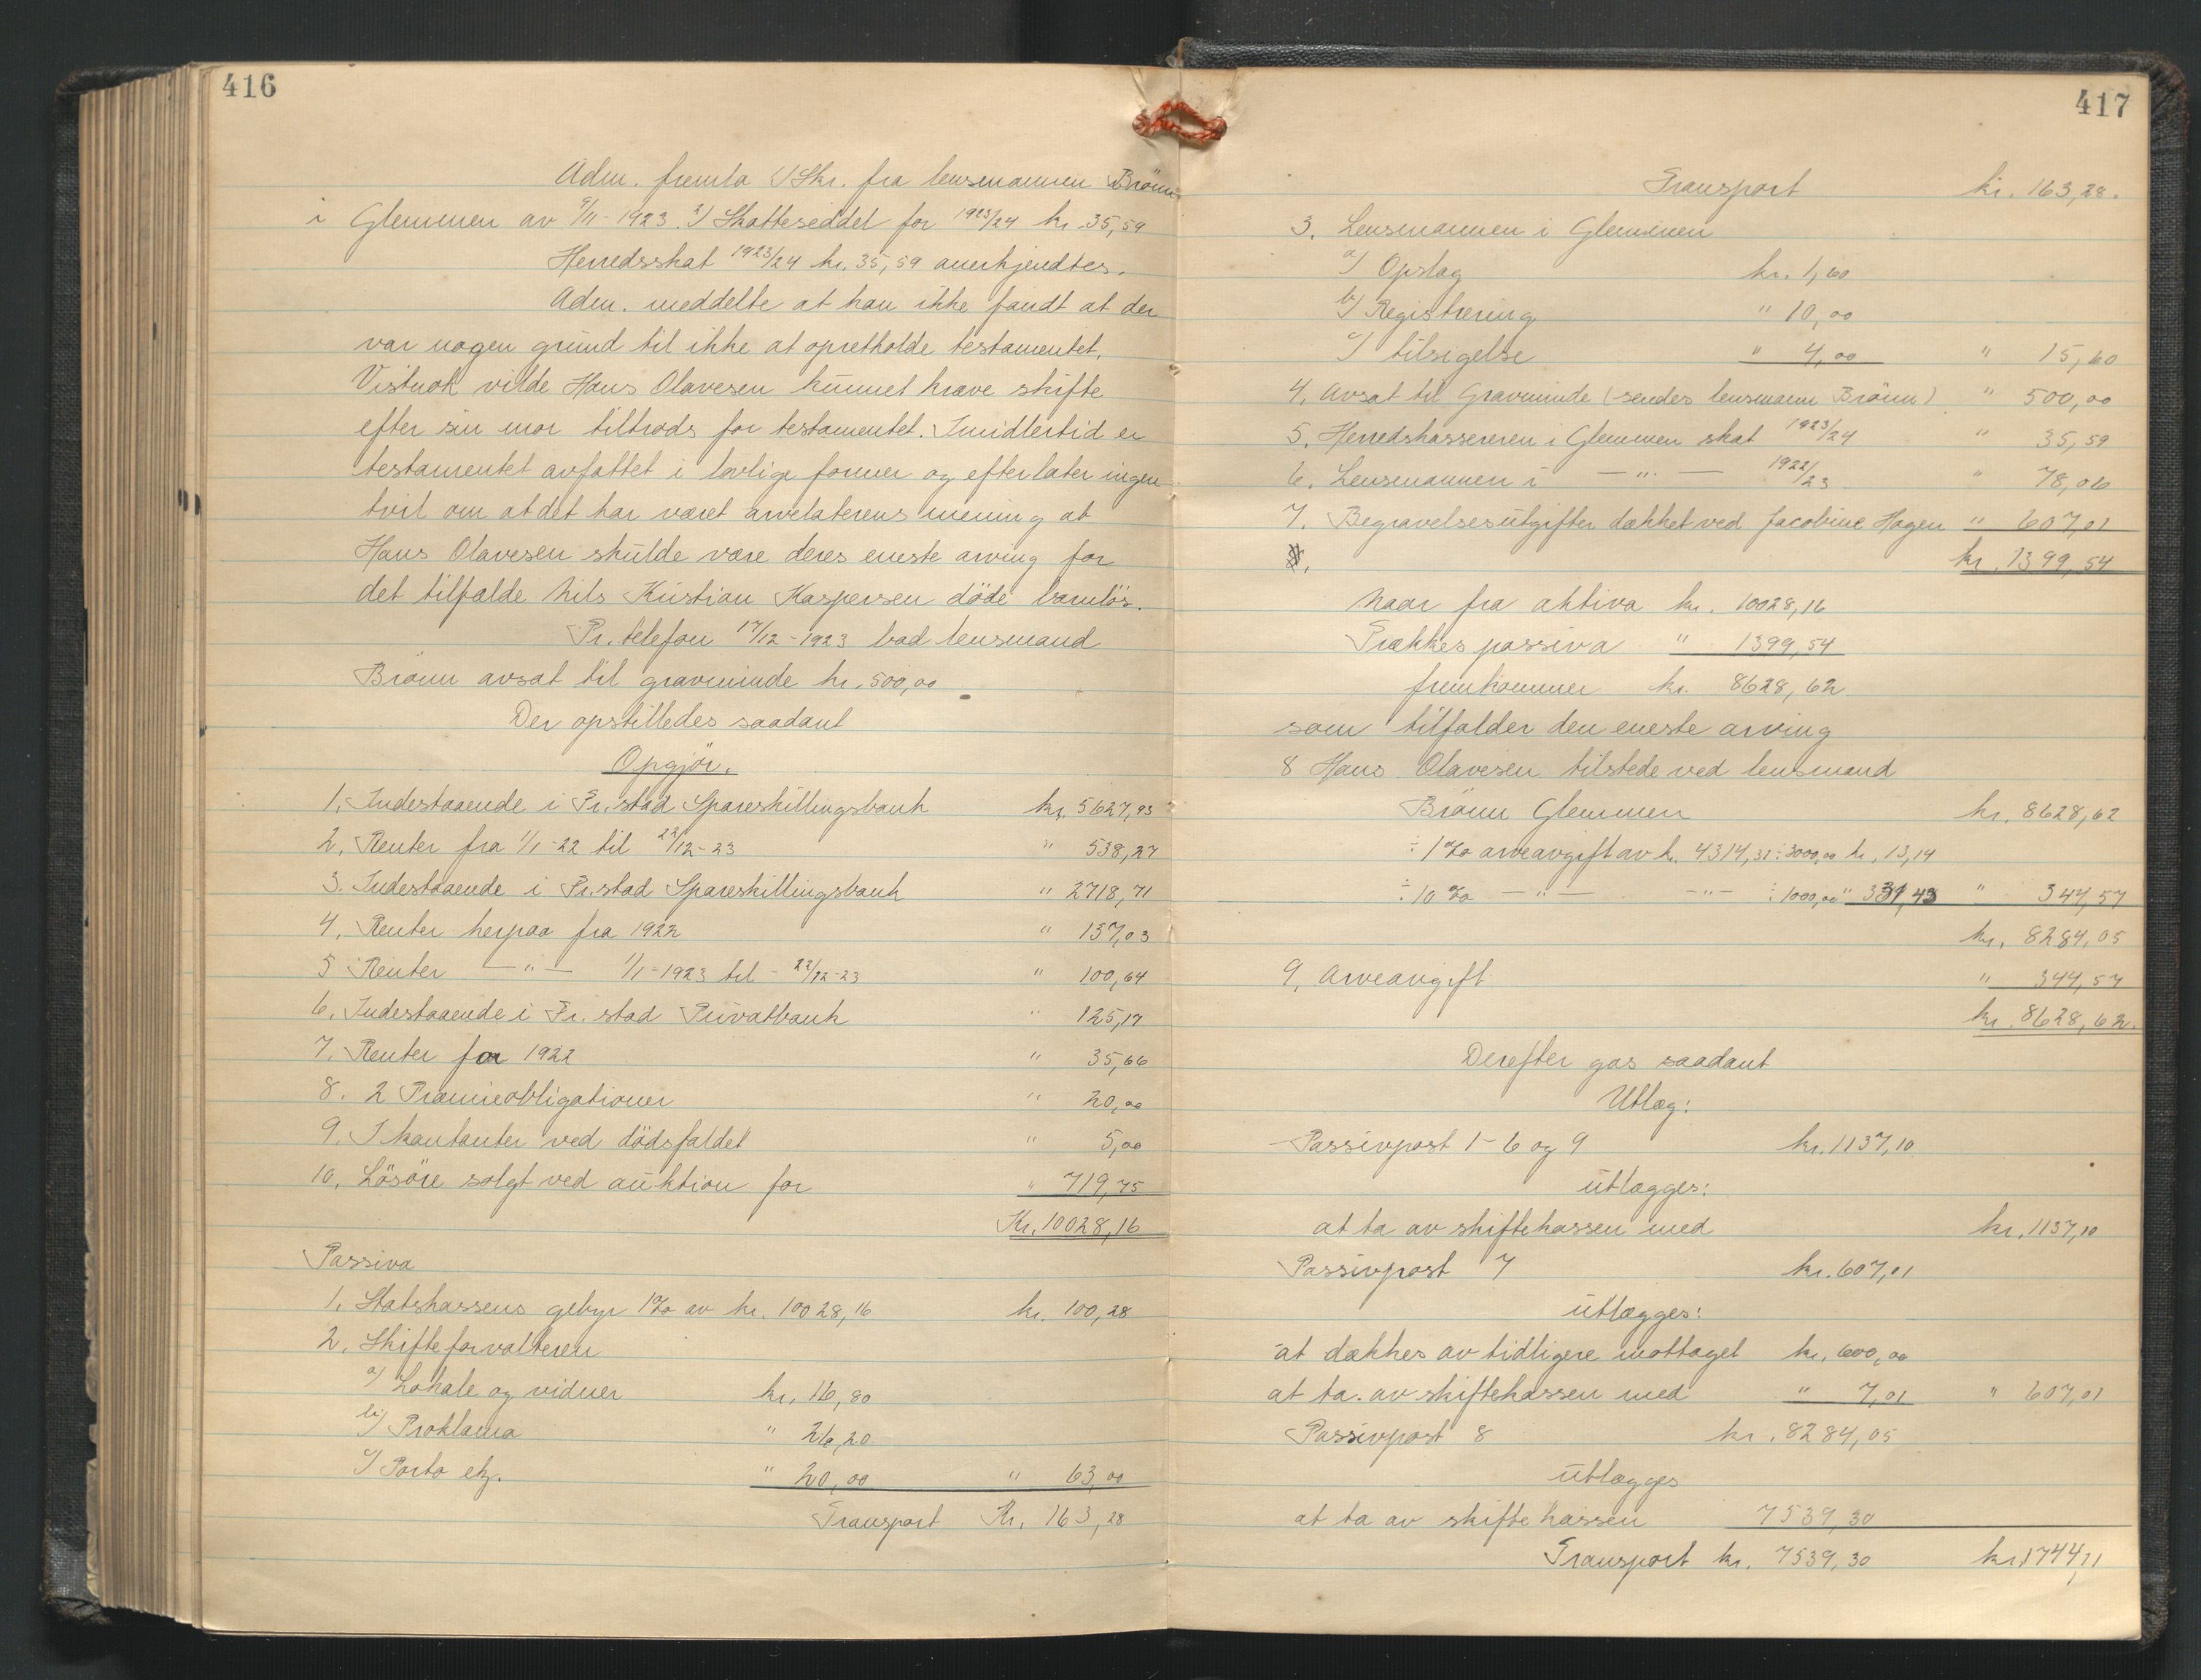 416
Adm. fremla 1) Skr. fra lensmannen Brönn
i Glemmen av 9/11-1923. 2) Skatteseddel for 1923/24 kr. 35,59
Herredsskat 1923/24 kr. 35,59 anerkjendtes.
Adm. meddelte at han ikke fandt at der
var nogen grund til ikke at opretholde testamentet.
Vistnok vilde Hans Olavesen kunnet kræve skifte
efter sin mor tiltrods for testamentet. Imidlertid er
testamentet avfattet i lovlige former og efterlater ingen
tvil om at det har været arvelaterens mening at
Hans Olavesen skulde være deres eneste arving for
det tilfælde Nils Kristian Kaspersen döde barnlös.
Pr. telefon 17/12-1923 bad lensmand
Brönn avsat til gravminde kr. 500,00
Der opstilledes saadant
Opgjör.
1. Indestaaende i Fr.stad Spareskillingsbank kr. 5627,93
2. Renter fra 1/1-22 til 22/12-23 " 538,27
3. Indestaaende i Fr.stad Spareskillingsbank " 2718,71
4. Renter herpaa fra 1922 " 137,03
5 Renter —"— 1/1-1923 til - 22/12-23 " 100,64
6. Indestaaende i Fr.stad Privatbank " 125,17
7. Renter for 1922 " 35,66
8. 2 Præmieobligationer " 20,00
9. I kontanter ved dödsfaldet " 5,00
10. Lösöre solgt ved auktion for " 719,75
Kr. 10028,16
Passiva
1. Statskassens gebyr 1% av kr. 10028,16 kr. 100,28
2. Skifteforvalteren
a) Lokale og vidner kr. 16,80
b) Proklama " 26,20
c) Porto etz. " 20,00 " 63,00
Transport Kr. 163,28
417
Transport kr. 163,28.
3. Lensmannen i Glemmen
a) Opslag kr. 1,60
b) Registrering " 10,00
c) tilsigelse " 4,00 " 15,60
4. Avsat til Gravminde (sendes lensmann Brönn) " 500,00
5. Herredskassereren i Glemmen skat 1923/24 " 35,59
6. Lensmannen i —"— 1922/23 " 78,06
7. Begravelsesutgifter dækket ved Jacobine Hagen " 607,01
8. kr. 1399,54
Naar fra aktiva kr. 10028,16
Trækkes passiva " 1399,54
fremkommer kr. 8628,62
som tilfalder den eneste arving
8 Hans Olavesen tilstede ved lensmand
Brönn Glemmen kr. 8628,62
÷ 1% arveavgift av kr. 4314,31 ÷ 3000,00 kr. 13,14
÷ 10% —"— —"— ÷ 1000,00 " 331,43 " 344,57
kr. 8284,05
9. Arveavgift " 344,57
kr. 8628,62.
Derefter gas saadant
Utlæg:
Passivpost 1-6 og 9 kr. 1137,10
utlægges:
at ta av skiftekassen med kr. 1137,10
Passivpost 7 kr. 607,01
utlægges:
at dækkes av tidligere mottaget kr. 600,00
at ta av skiftekassen med " 7,01 " 607,01
Passivpost 8 kr. 8284,05
utlægges
at ta av skiftekassen 7539,30
Transport kr. 7539,30 kr. 1744,11